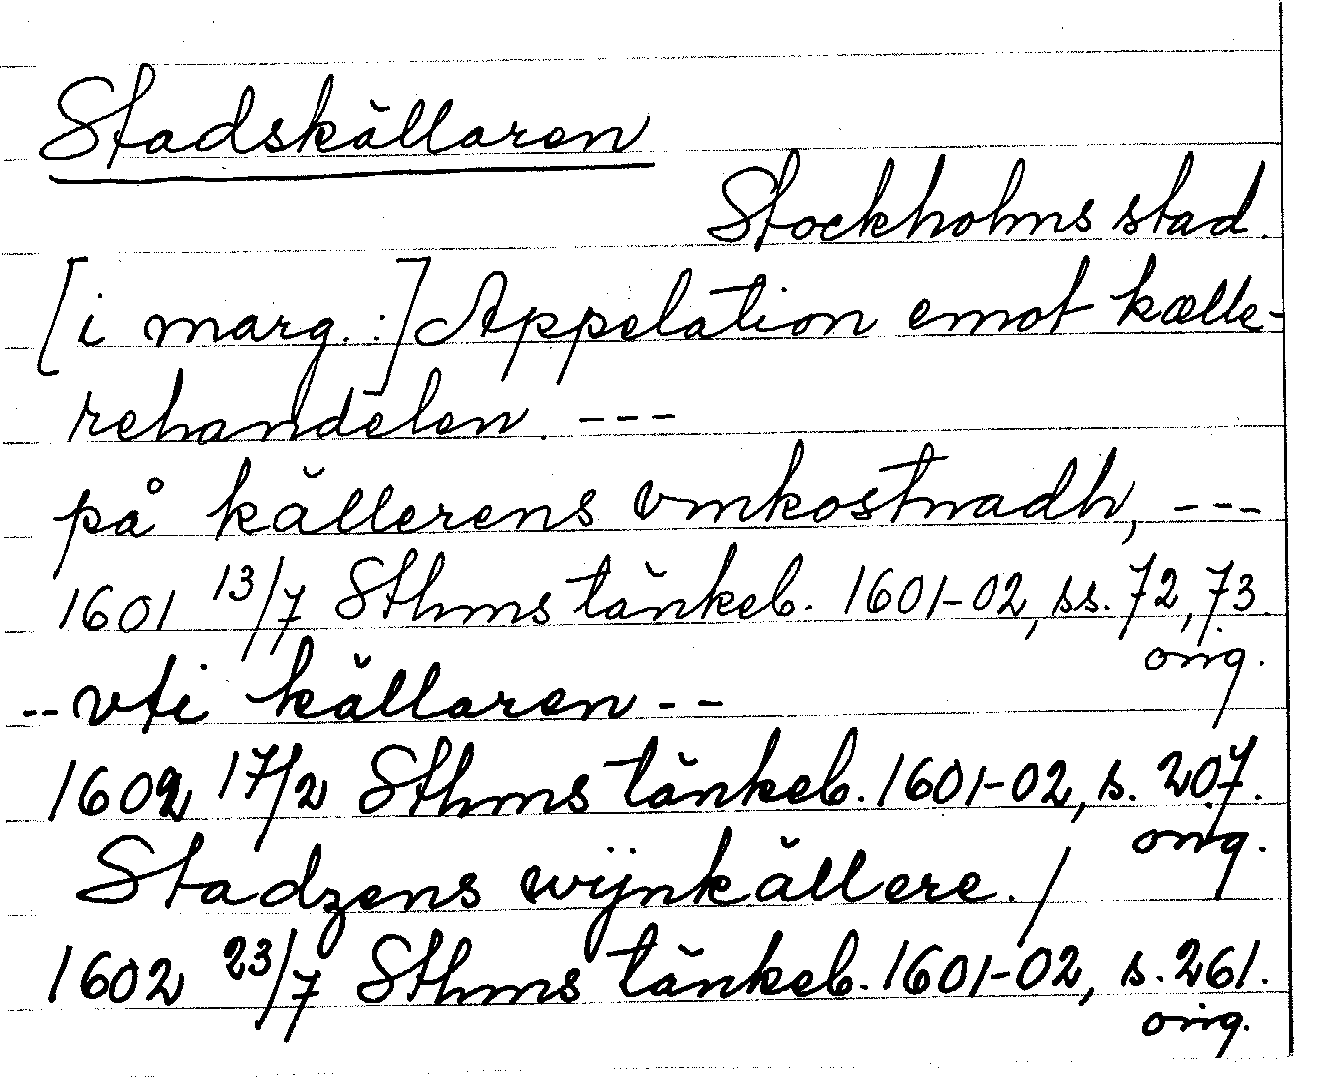 Stadskällaren
Stockholms stad.
[i marg.:] Appelation emot kælle-
rehandelen. ---
på källerens vmkostnadh, ---
1601 13/7 Sthms tänkeb. 1601-02, ss. 72, 73.
orig.
-- vti källaren --
1602 17/2 Sthms tänkeb. 1601-02, s. 207.
orig.
Stadzens wÿnkällere. /
1602 23/7 Sthms tänkeb. 1601-02, s. 261.
orig.